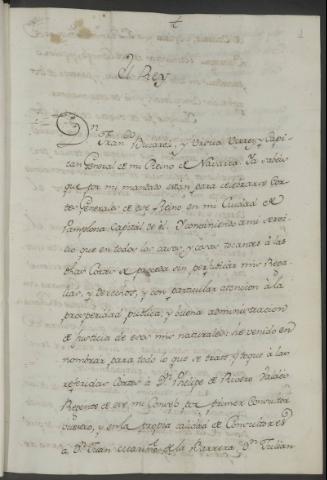 El Rey
Dn. Franco. Bucareli, y Ursua Virrey y Capi-
tan General de mi Reino de Navarra. Ya sabeis
que por mi mandado están para celebrarse Cor-
tes Generales de ese Reino en mi Ciudad de
Pamplona Capital de él. Y conviniendo á mi servi-
cio que en todos los casos, y cosas tocantes á las
dhas Cortes se proceda sin perjudicar mis Rega-
lias, y derechos, y con particular atencion á la
prosperidad publica, y buena administracion
de Justicia de esos mis naturales: he venido en
nombrar, para todo lo que se trate y toque á las
referidas Cortes á Dn. Phelipe de Rivero Valdés
Regente de ese mi Consejo por primer Consultor
vuestro, y en la propia calidad de Consultores
á Dn. Juan de la Barrera, Dn. Julian